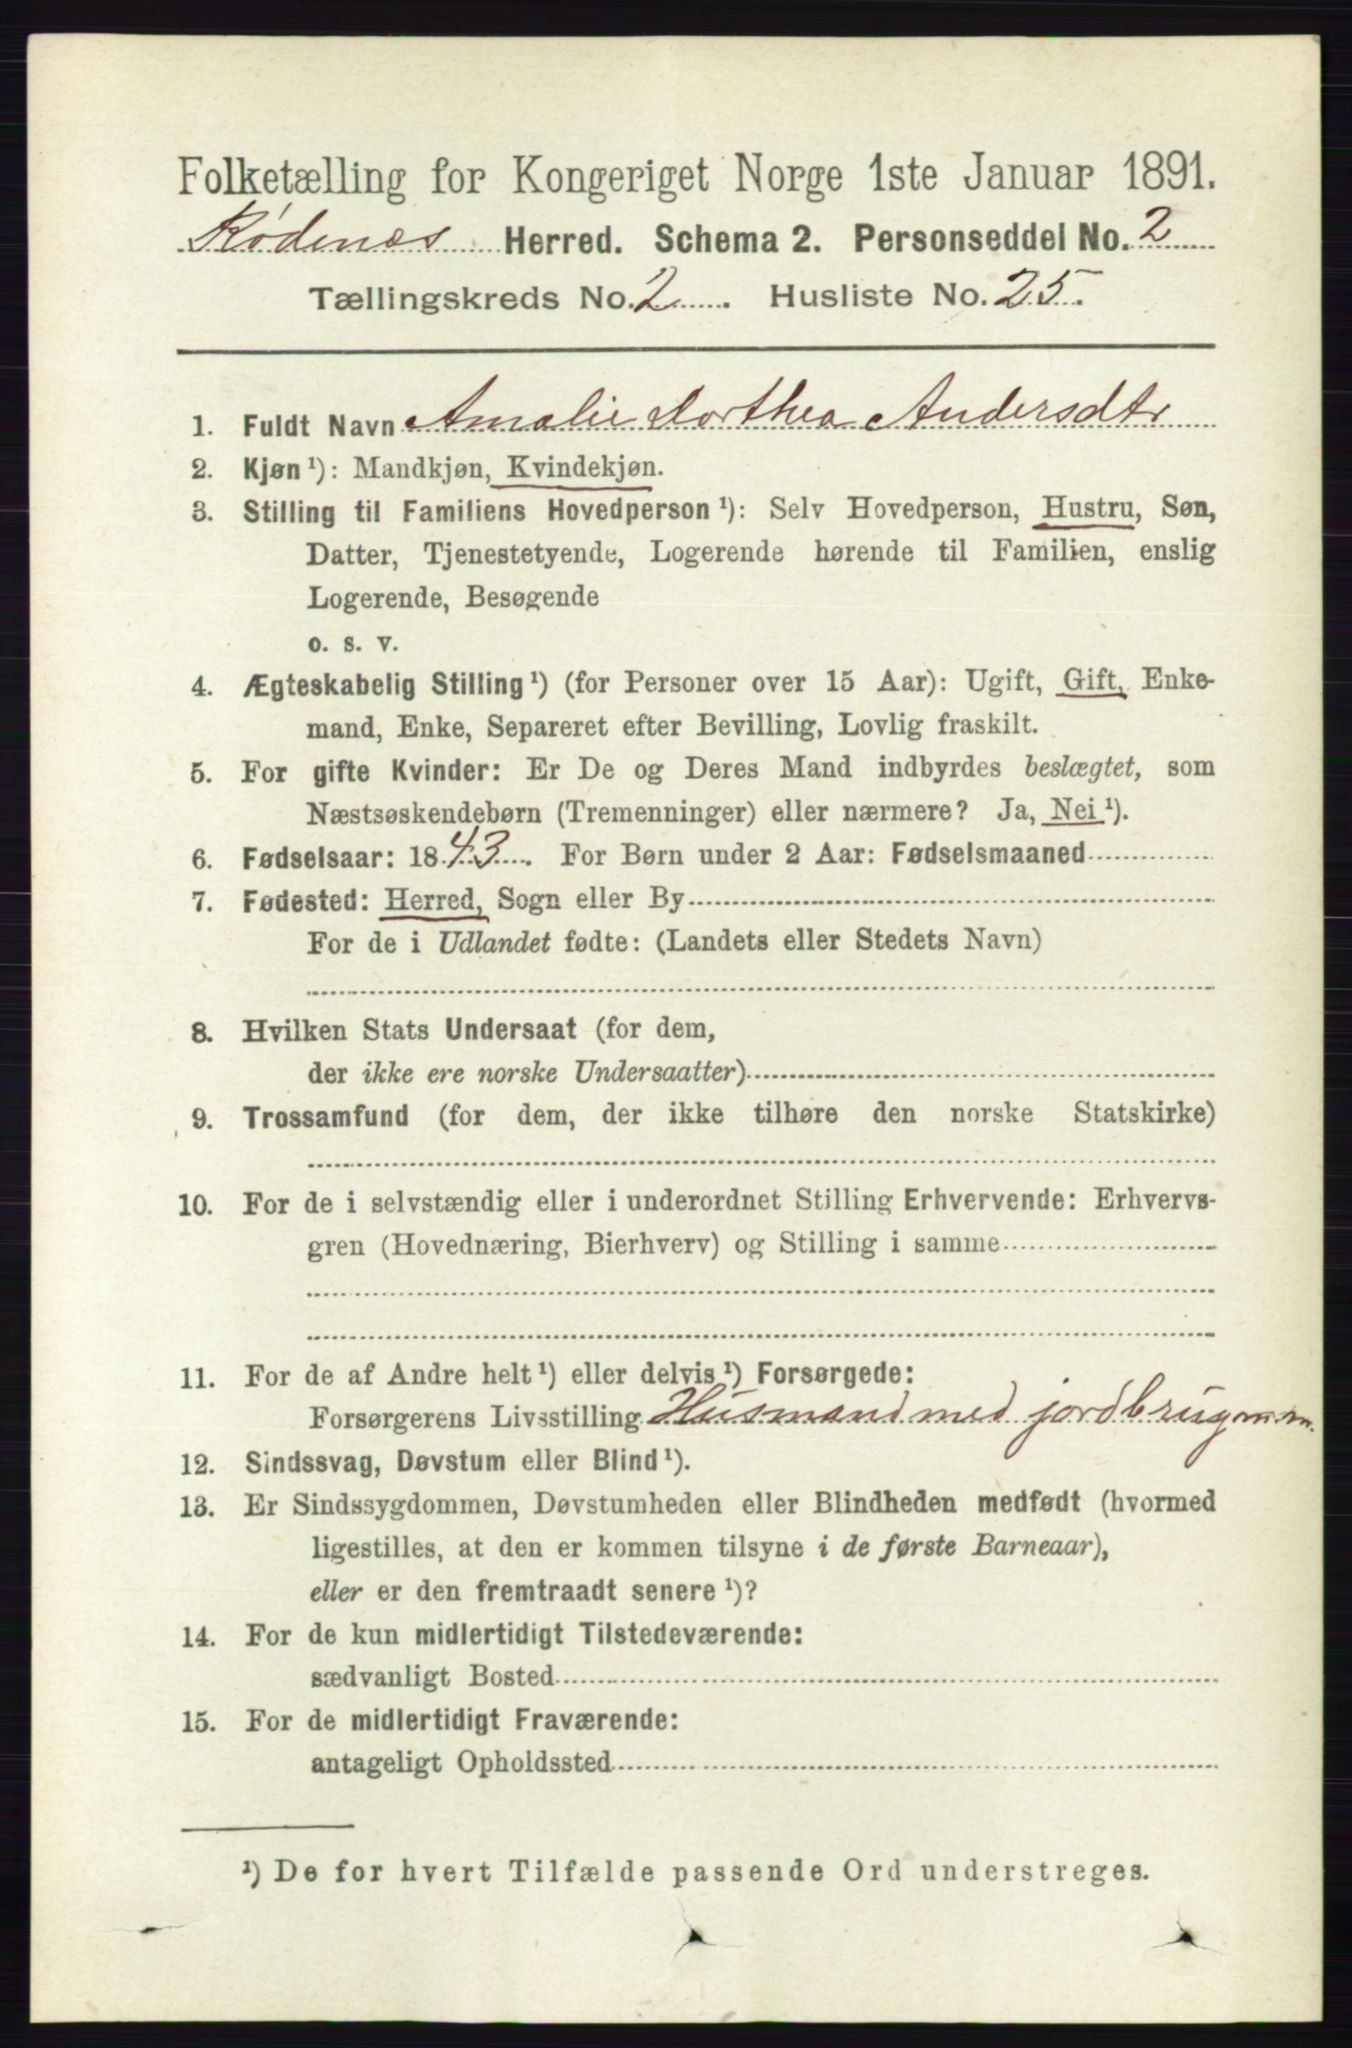 Folketælling for Kongeriget Norge 1ste Januar 1891.
Rødenæs Herred. Schema 2. Personseddel No. 2
Tællingskreds No. 2. Husliste No. 25.
1. Fuldt Navn Amalie Dorthea Andersdtr
2. Kjøn ¹): Mandkjøn, Kvindekjøn.
3. Stilling til Familiens Hovedperson ¹): Selv Hovedperson, Hustru, Søn,
Datter, Tjenestetyende, Logerende hørende til Familien, enslig
Logerende, Besøgende
o. s. v.
4. Ægteskabelig Stilling ¹) (for Personer over 15 Aar): Ugift, Gift, Enke-
mand, Enke, Separeret efter Bevilling, Lovlig fraskilt.
5. For gifte Kvinder: Er De og Deres Mand indbyrdes beslægtet, som
Næstsøskendebørn (Tremenninger) eller nærmere? Ja, Nei ¹).
6. Fødselsaar: 1843. For Børn under 2 Aar: Fødselsmaaned
7. Fødested: Herred, Sogn eller By
For de i Udlandet fødte: (Landets eller Stedets Navn)
8. Hvilken Stats Undersaat (for dem,
der ikke ere norske Undersaatter)
9. Trossamfund (for dem, der ikke tilhøre den norske Statskirke)
10. For de i selvstændig eller i underordnet Stilling Erhvervende: Erhvervs-
gren (Hovednæring, Bierhverv) og Stilling i samme
11. For de af Andre helt ¹) eller delvis ¹) Forsørgede:
Forsørgerens Livsstilling Husmand med jordbrug m.m.
12. Sindssvag, Døvstum eller Blind ¹).
13. Er Sindssygdommen, Døvstumheden eller Blindheden medfødt (hvormed
ligestilles, at den er kommen tilsyne i de første Barneaar),
eller er den fremtraadt senere ¹)?
14. For de kun midlertidigt Tilstedeværende:
sædvanligt Bosted
15. For de midlertidigt Fraværende:
antageligt Opholdssted
¹) De for hvert Tilfælde passende Ord understreges.